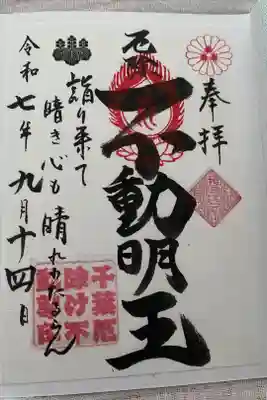 奉拝
厄除
不動明王
詣り来て
暗き心も
晴れわたるらん
令和七年九月十四日
千葉厄
除け不